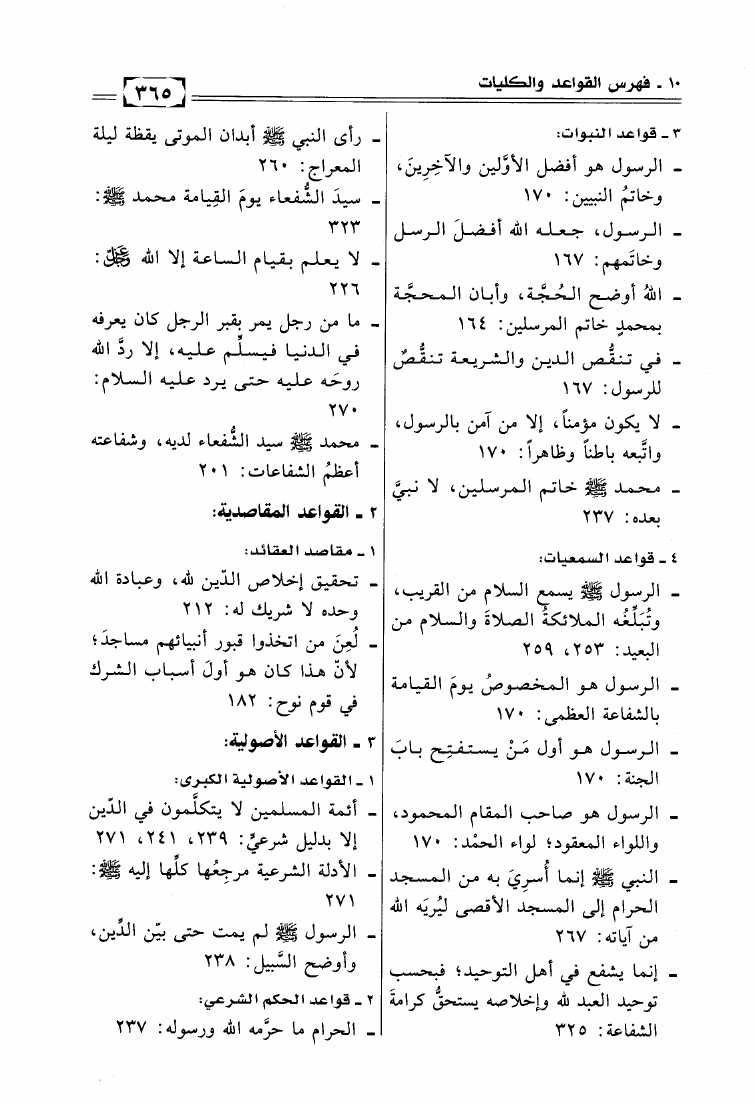 ١٠ - فهرس القواعد والكليات
٣٦٥
٣ - قواعد النبوات:
- الرسول هو أفضل الأوَّلين والآخِرِينَ،
وخاتمُ النبيين: ١٧٠
- الرسول، جعله الله أفضلَ الرسل
وخاتَمهم: ١٦٧
- اللهُ أوضح الحُجَّة، وأبان المحجَّة
بمحمدٍ خاتم المرسلين: ١٦٤
- في تنقُّص الدين والشريعة تنقُّصٌ
للرسول: ١٦٧
- لا يكون مؤمناً، إلا من آمن بالرسول،
واتَّبعه باطناً وظاهراً: ١٧٠
- محمد ﷺ خاتم المرسلين، لا نبيَّ
بعده: ٢٣٧
٤ - قواعد السمعيات:
- الرسول ﷺ يسمع السلام من القريب،
وتُبَلِّغُه الملائكةُ الصلاةَ والسلام من
البعيد: ٢٥٣، ٢٥٩
- الرسول هو المخصوصُ يومَ القيامة
بالشفاعة العظمى: ١٧٠
- الرسول هو أول مَنْ يستفتِح بابَ
الجنة: ١٧٠
- الرسول هو صاحب المقام المحمود،
واللواء المعقود؛ لواء الحمْد: ١٧٠
- النبي ﷺ إنما أُسرِيَ به من المسجد
الحرام إلى المسجد الأقصى ليُريَه الله
من آياته: ٢٦٧
- إنما يشفع في أهل التوحيد؛ فبحسب
توحيد العبد لله وإخلاصه يستحقُّ كرامةَ
الشفاعة: ٣٢٥
- رأى النبي ﷺ أبدان الموتى يقظة ليلة
المعراج: ٢٦٠
- سيدَ الشُّفعاء يومَ القِيامة محمد ﷺ:
٣٢٣
- لا يعلم بقيام الساعة إلا الله ﷻ:
٢٢٦
- ما من رجل يمر بقبر الرجل كان يعرفه
في الدنيا فيسلِّم عليه، إلا ردَّ الله
روحَه عليه حتى يرد عليه السلام:
٢٧٠
- محمد ﷺ سيد الشُّفعاء لديه، وشفاعته
أعظمُ الشفاعات: ٢٠١
٢ - القواعد المقاصدية:
١ - مقاصد العقائد:
- تحقيق إخلاص الدّين لله، وعبادة الله
وحده لا شريك له: ٢١٢
- لُعِنَ من اتخذوا قبور أنبيائهم مساجدَ؛
لأنّ هذا كان هو أولَ أسباب الشرك
في قوم نوح: ١٨٢
٣ - القواعد الأصولية:
١ - القواعد الأصولية الكبرى:
- أئمة المسلمين لا يتكلَّمون في الدّين
إلا بدليل شرعيٍّ: ٢٣٩، ٢٤١، ٢٧١
- الأدلة الشرعية مرجِعُها كلِّها إليه ﷺ:
٢٧١
- الرسول ﷺ لم يمت حتى بيّن الدِّين،
وأوضح السَّبيل: ٢٣٨
٢ - قواعد الحكم الشرعي:
- الحرام ما حرَّمه الله ورسوله: ٢٣٧